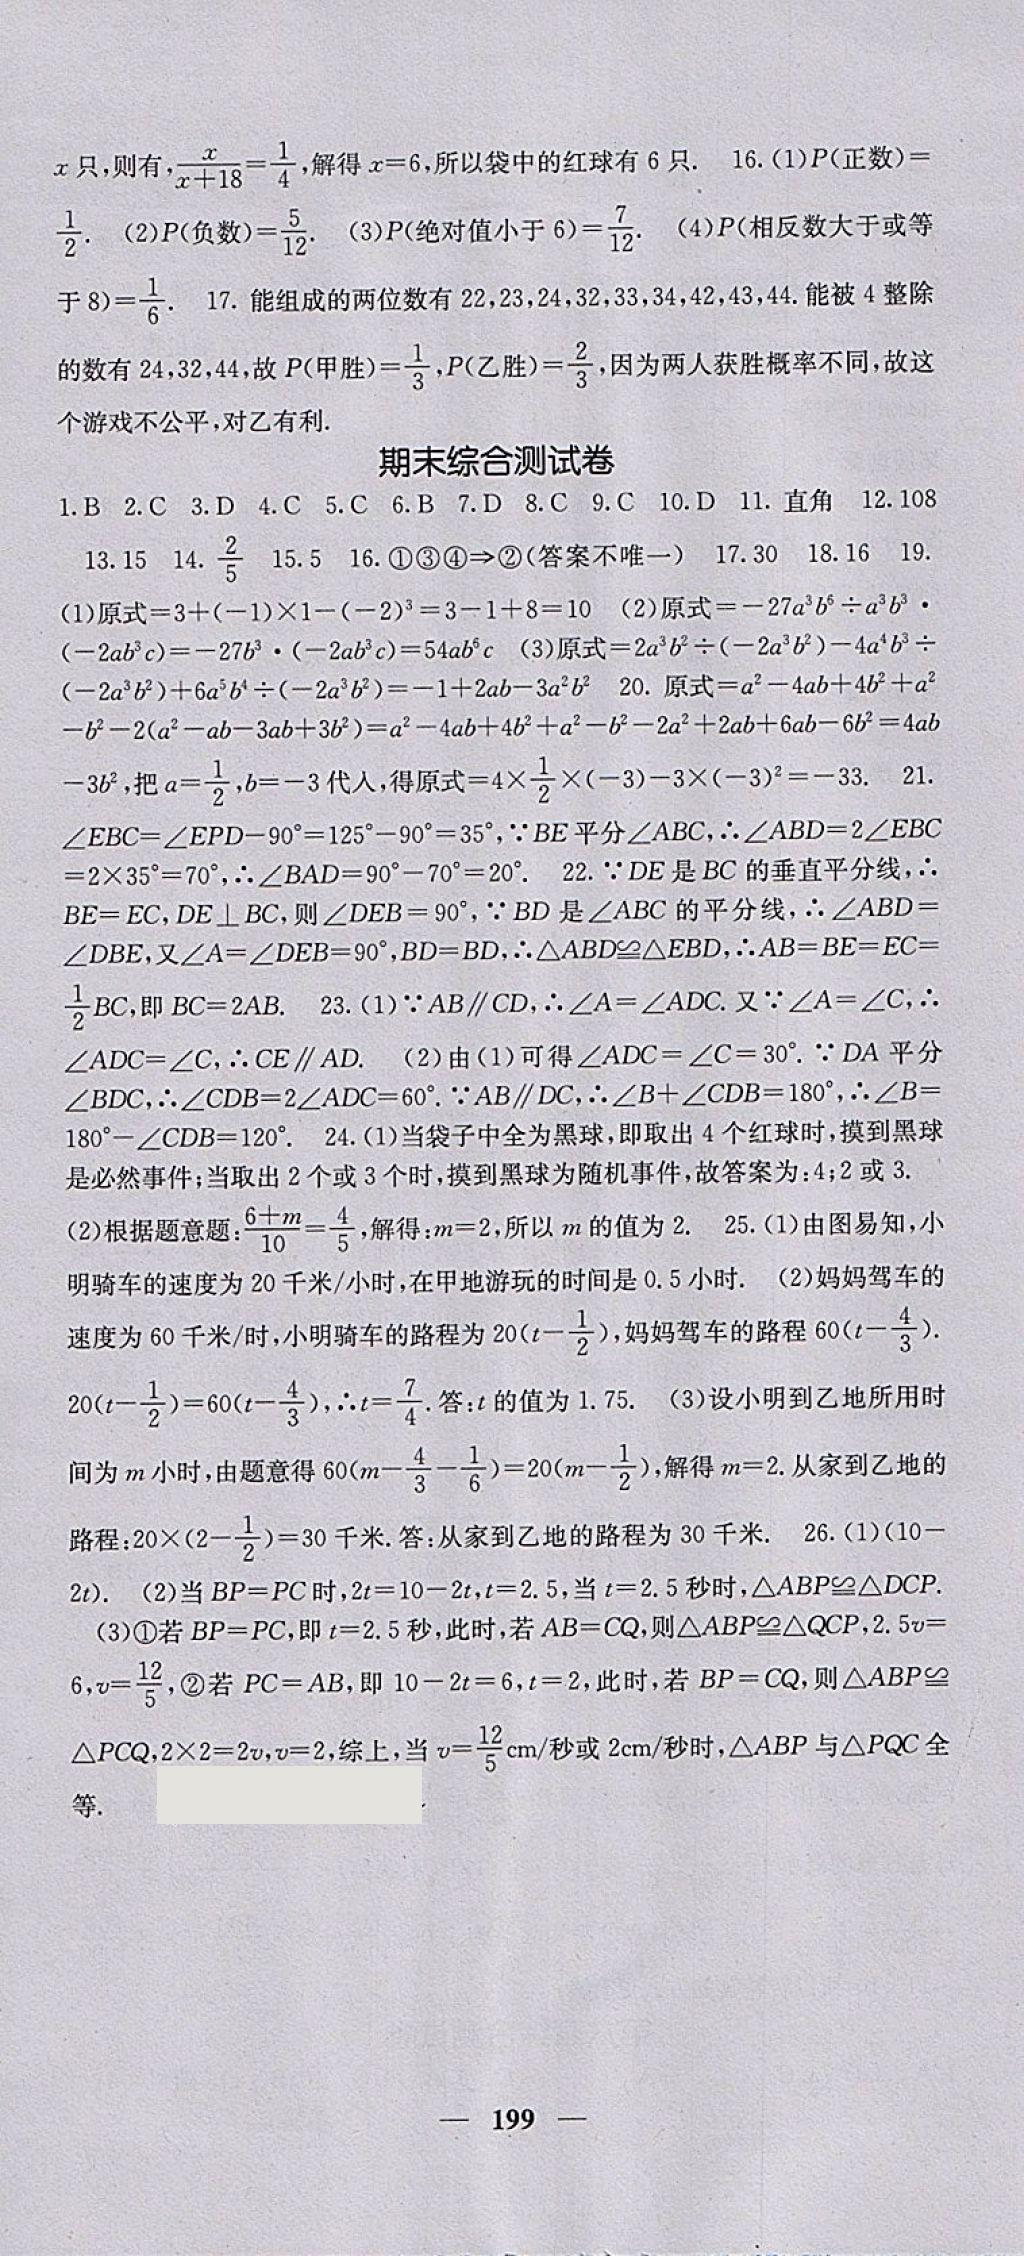 x只,则有,x/(x+18)=1/4,解得x=6,所以袋中的红球有6只. 16.(1)P(正数)=
1/2. (2)P(负数)=5/12. (3)P(绝对值小于6)=7/12. (4)P(相反数大于或等
于8)=1/6. 17. 能组成的两位数有22,23,24,32,33,34,42,43,44.能被4整除
的数有24,32,44,故P(甲胜)=1/3,P(乙胜)=2/3,因为两人获胜概率不同,故这
个游戏不公平,对乙有利.
期末综合测试卷
1.B 2.C 3.D 4.C 5.C 6.B 7.D 8.C 9.C 10.D 11. 直角 12.108
13.15 14. 2/5 15.5 16.①③④⇒②(答案不唯一) 17.30 18.16 19.
(1)原式=3+(-1)×1-(-2)³=3-1+8=10 (2)原式=-27a³b⁶÷a³b³·
(-2ab³c)=-27b³·(-2ab³c)=54ab⁶c (3)原式=2a³b²÷(-2a³b²)-4a⁴b³÷
(-2a³b²)+6a⁵b⁴÷(-2a³b²)=-1+2ab-3a²b² 20. 原式=a²-4ab+4b²+a²
-b²-2(a²-ab-3ab+3b²)=a²-4ab+4b²+a²-b²-2a²+2ab+6ab-6b²=4ab
-3b²,把a=1/2,b=-3代入,得原式=4×1/2×(-3)-3×(-3)²=-33. 21.
∠EBC=∠EPD-90°=125°-90°=35°,∵BE平分∠ABC,∴∠ABD=2∠EBC
=2×35°=70°,∴∠BAD=90°-70°=20°. 22.∵DE是BC的垂直平分线,∴
BE=EC,DE⊥BC,则∠DEB=90°,∵BD是∠ABC的平分线,∴∠ABD=
∠DBE,又∠A=∠DEB=90°,BD=BD,∴△ABD≌△EBD,∴AB=BE=EC=
1/2BC,即BC=2AB. 23.(1)∵AB∥CD,∴∠A=∠ADC.又∵∠A=∠C,∴
∠ADC=∠C,∴CE∥AD. (2)由(1)可得∠ADC=∠C=30°.∵DA平分
∠BDC,∴∠CDB=2∠ADC=60°.∵AB∥DC,∴∠B+∠CDB=180°,∴∠B=
180°-∠CDB=120°. 24.(1)当袋子中全为黑球,即取出4个红球时,摸到黑球
是必然事件;当取出2个或3个时,摸到黑球为随机事件,故答案为:4;2或3.
(2)根据题意题:(6+m)/10=4/5,解得:m=2,所以m的值为2. 25.(1)由图易知,小
明骑车的速度为20千米/小时,在甲地游玩的时间是0.5小时. (2)妈妈驾车的
速度为60千米/时,小明骑车的路程为20(t-1/2),妈妈驾车的路程60(t-4/3).
20(t-1/2)=60(t-4/3),∴t=7/4.答:t的值为1.75. (3)设小明到乙地所用时
间为m小时,由题意得60(m-4/3-1/6)=20(m-1/2),解得m=2.从家到乙地的
路程:20×(2-1/2)=30千米.答:从家到乙地的路程为30千米. 26.(1)(10-
2t). (2)当BP=PC时,2t=10-2t,t=2.5,当t=2.5秒时,△ABP≌△DCP.
(3)①若BP=PC,即t=2.5秒,此时,若AB=CQ,则△ABP≌△QCP,2.5v=
6,v=12/5,②若PC=AB,即10-2t=6,t=2,此时,若BP=CQ,则△ABP≌
△PCQ,2×2=2v,v=2,综上,当v=12/5cm/秒或2cm/秒时,△ABP与△PQC全
等.
— 199 —